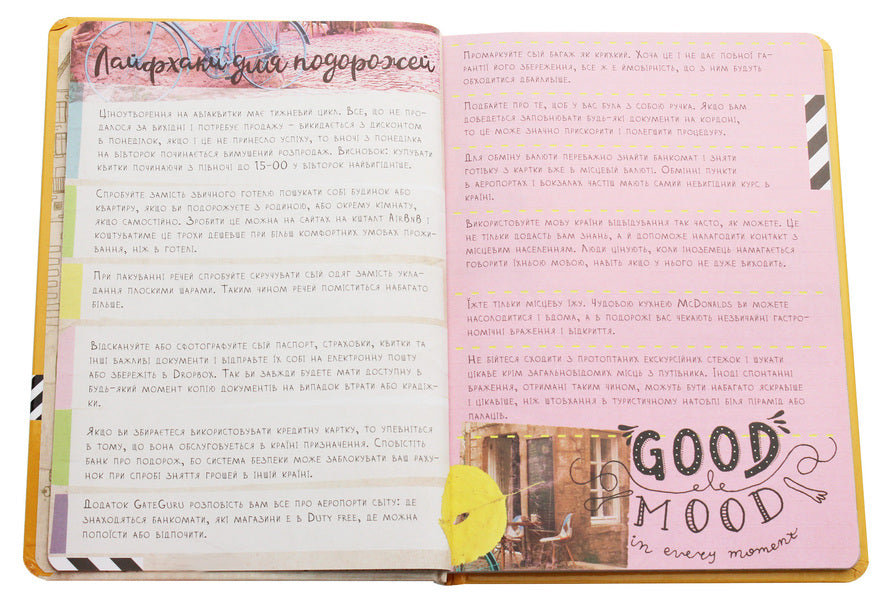 Лайфхаки для подорожей
Ціноутворення на авіаквитки має тижневий цикл. Все, що не про-
далося за вихідні і потребує продажу – викидається з дисконтом
в понеділок, якщо і це не принесло успіху, то вночі з понеділка
на вівторок починається вимушений розпродаж. Висновок: купувати
квитки починаючи з півночі до 15-00 у вівторок найвигідніше.
Спробуйте замість звичного готелю пошукати собі будинок або
квартиру, якщо ви подорожуєте з родиною, або окрему кімнату,
якщо самостійно. Зробити це можна на сайтах на кшталт AirBnB і
коштуватиме це трохи дешевше при більш комфортних умовах прожи-
вання, ніж в готелі.
При пакуванні речей спробуйте скручувати свій одяг замість укла-
дання плоскими шарами. Таким чином речей поміститься набагато
більше.
Відскануйте або сфотографуйте свій паспорт, страховки, квитки та
інші важливі документи і відправте їх собі на електронну пошту
або збережіть в Dropbox. Так ви завжди будете мати доступну в
будь-який момент копію документів на випадок втрати або крадіж-
ки.
Якщо ви збираєтеся використовувати кредитну картку, то упевніться
в тому, що вона обслуговується в країні призначення. Сповістіть
банк про подорож, бо система безпеки може заблокувати ваш раху-
нок при спробі зняття грошей в іншій країні.
Додаток GateGuru розповість вам все про аеропорти світу: де
знаходяться банкомати, які магазини є в Duty free, де можна
попоїсти або відпочити.
Промаркуйте свій багаж як крихкий. Хоча це і не дає повної га-
рантії його збереження, все ж є ймовірність, що з ним будуть
обходитися дбайливіше.
Подбайте про те, щоб у вас була з собою ручка. Якщо вам
доведеться заповнювати будь-які документи на кордоні,
то це може значно прискорити і полегшити процедуру.
Для обміну валюти переважно знайти банкомат і зняти
готівку з картки вже в місцевій валюті. Обмінні пункти
в аеропортах і вокзалах частіш мають самий невигідний курс в
країні.
Використовуйте мову країни відвідування так часто, як можете. Це
не тільки додасть вам знань, а й допоможе налагодити контакт з
місцевим населенням. Люди цінують, коли іноземець намагається
говорити їхньою мовою, навіть якщо у нього не дуже виходить.
Їжте тільки місцеву їжу. Чудовою кухнею McDonalds ви можете
насолодитися і вдома, а в подорожі вас чекають незвичайні гастро-
номічні враження і відкриття.
Не бійтеся сходити з протоптаних екскурсійних стежок і шукати
цікаве крім загальновідомих місць з путівника. Іноді спонтанні
враження, отримані таким чином, можуть бути набагато яскравіше
і цікавіше, ніж штовхання в туристичному натовпі біля пірамід або
палаців.
GOOD
MOOD
in every moment